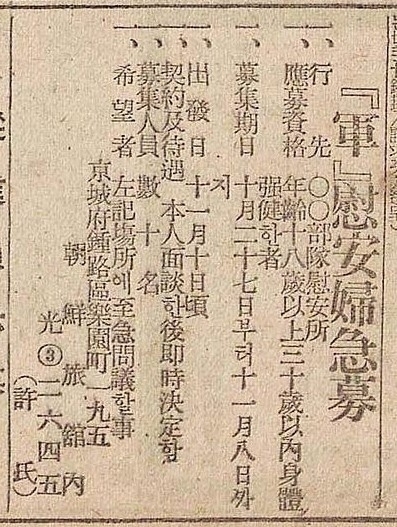 『軍』慰安婦急募
一、行先 〇〇部隊慰安所
一、應募資格 年齡十八歲以上三十歲以內身體
强健한者
一、募集期日 十月二十七日부터十一月八日까
지
一、出發日 十一月十日頃
一、契約及待遇 本人面談한後即時決定함
一、募集人員 數十名
一、希望者 左記場所에至急問議할事
京城府鍾路區樂園町一九五
朝鮮旅館內
光③二六四五
(許氏)